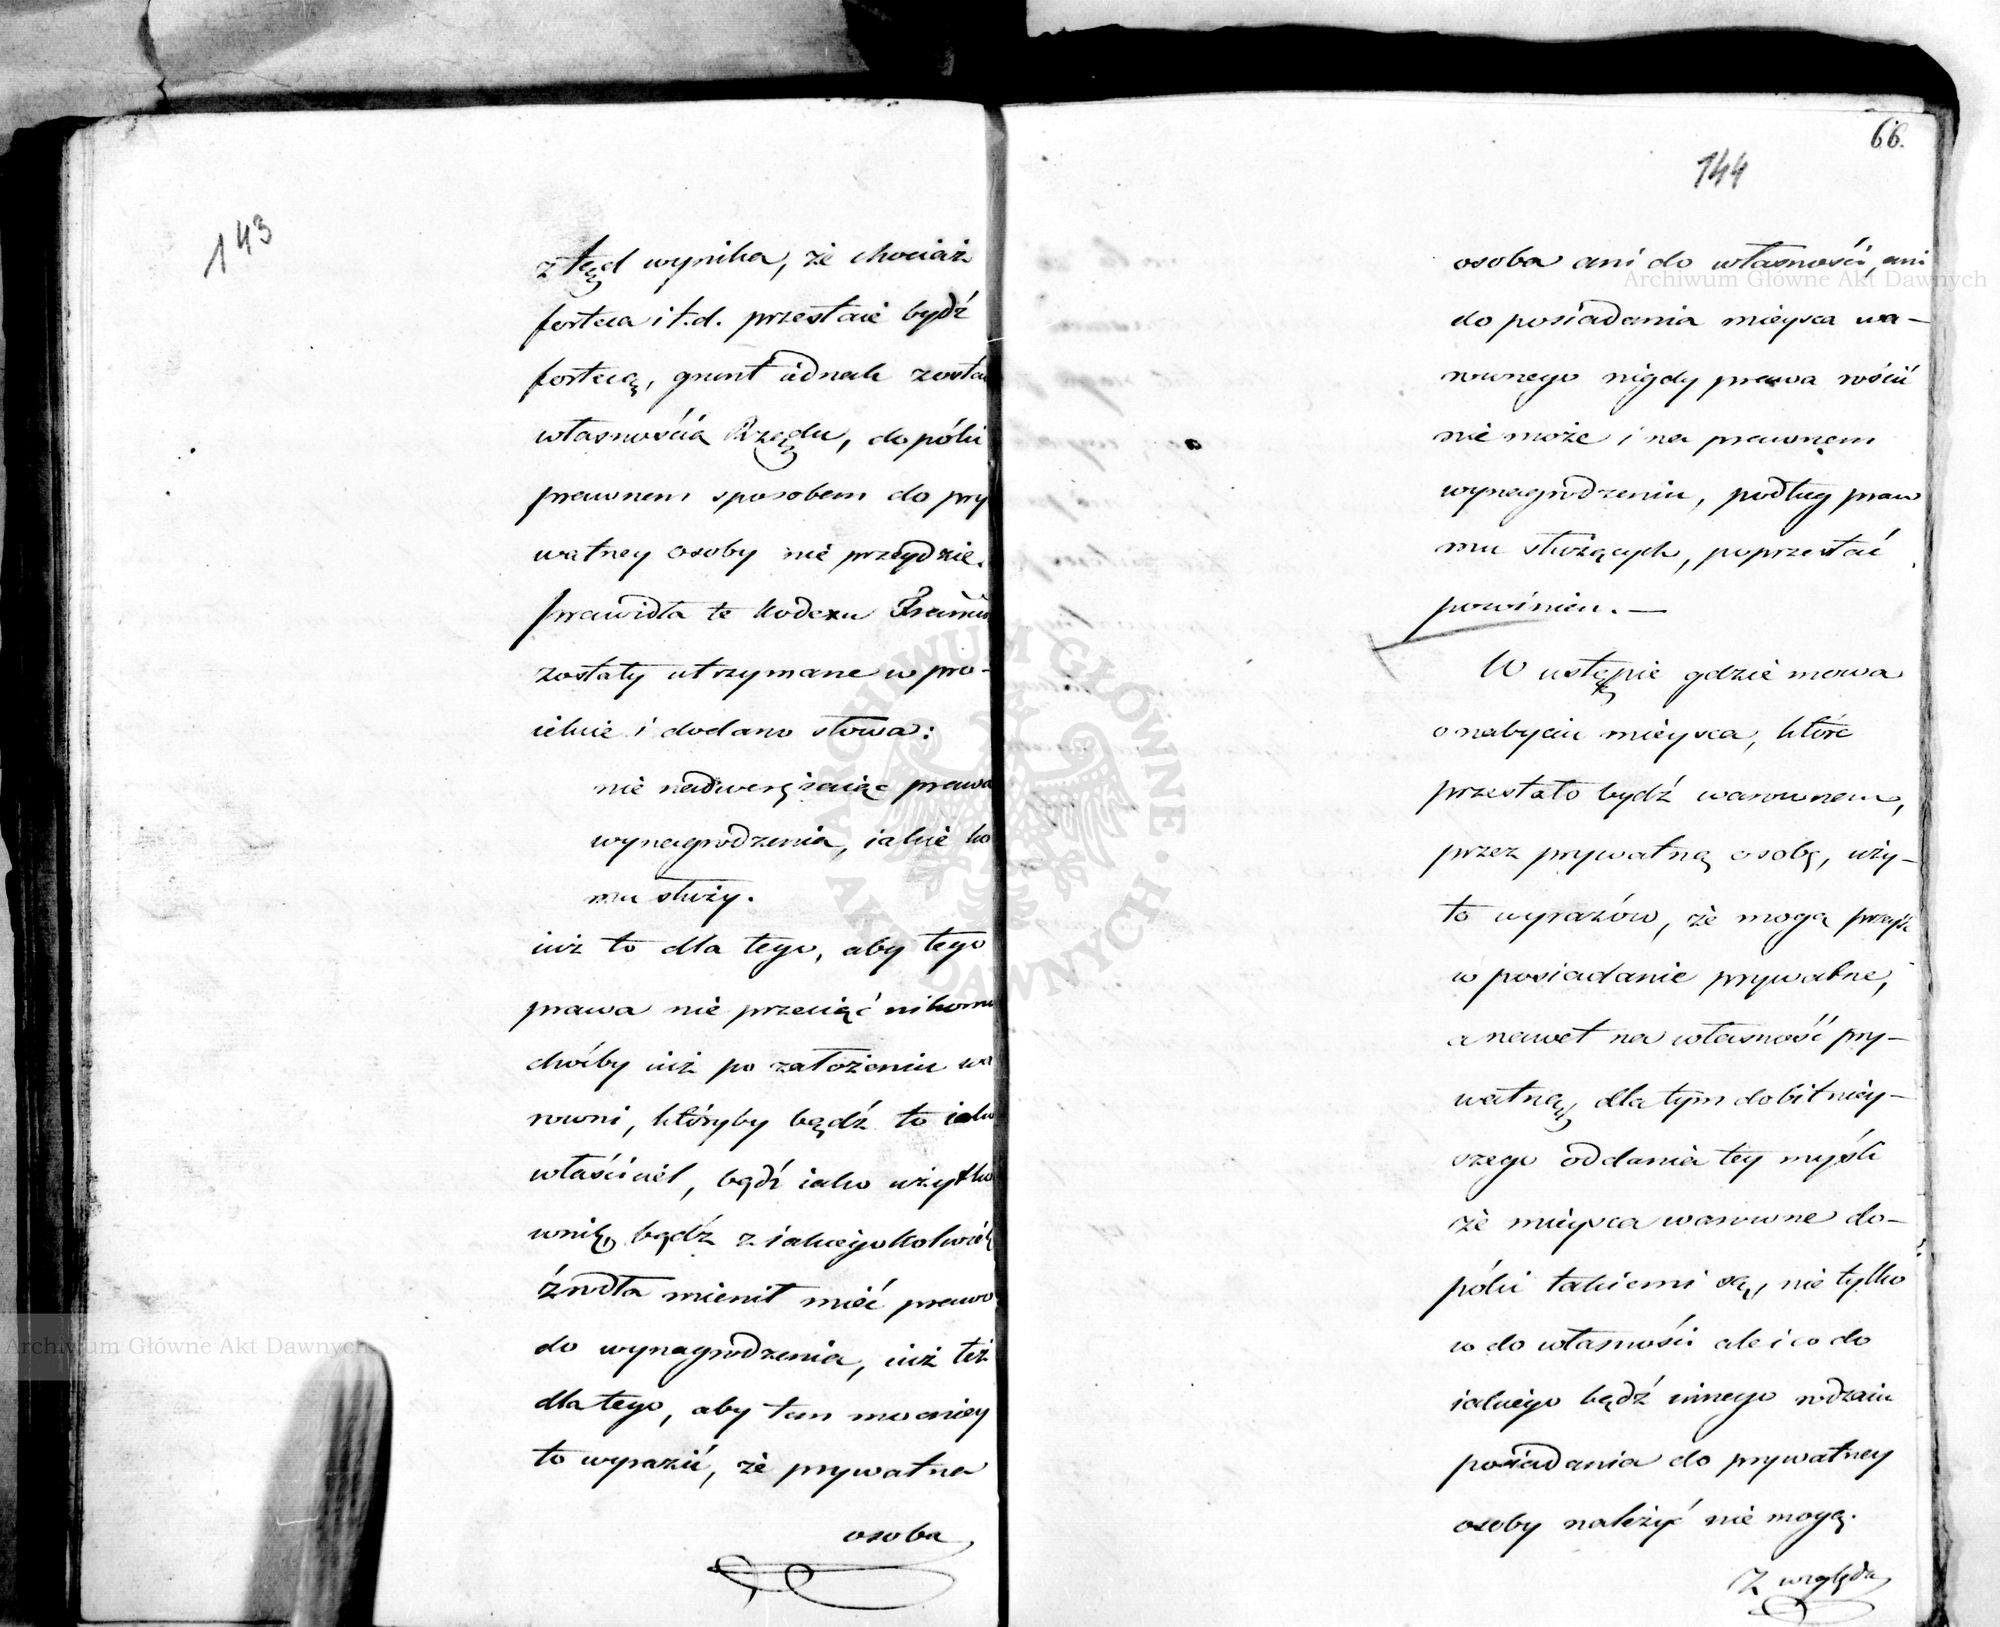 143
ztąd wynika, że chociaż
forteca i t.d. przestaie bydź
fortecą, grunt iednak zosta
własnością Rządu, dopóki
prawnem sposobem do pry
watney osoby nie przeydzie.
Prawidła te kodexu
zostały utrzymane w pro-
iekcie i dodano słowa:
nie nadweręzaiąc prawa
wynagrodzenia, iakie ko
mu służy.
iuż to dla tego, aby tego
prawa nie przeciąć nikomu
choćby iuż po założeniu wa
rowni, któryby bądź to iako
właściciel, bądź iako użytko
wnik, bądź z iakiegokolwiek
źrodła mienił mieć prawo
do wynagrodzenia, iuż też
dla tego, aby tem mocniey
to wyrazić, że prywatna
osoba
66.
144
osoba ani do własności, ani
do posiadania mieysca wa-
rownego nigdy prawa rościć
nie może i na prawnem
wynagrodzeniu, podług praw
mu służących, poprzestać
powinien. —
W ustępie gdzie mowa
o nabyciu mieysca, które
przestało bydź warownem,
przez prywatną osobę, uży-
to wyrazów, że mogą przeyść
w posiadanie prywatne,
a nawet na własność pry-
watną, dla tym dobitniey-
szego oddania tey myśli
że mieysca warowne do-
póki takiemi są, nie tylko
co do własności ale i co do
iakiego bądź innego rodzaiu
posiadania do prywatney
osoby należyć nie mogą.
Z względu
Archiwum Główne Akt Dawnych
Archiwum Główne Akt Dawnych
ARCHIWUM GŁÓWNE AKT DAWNYCH